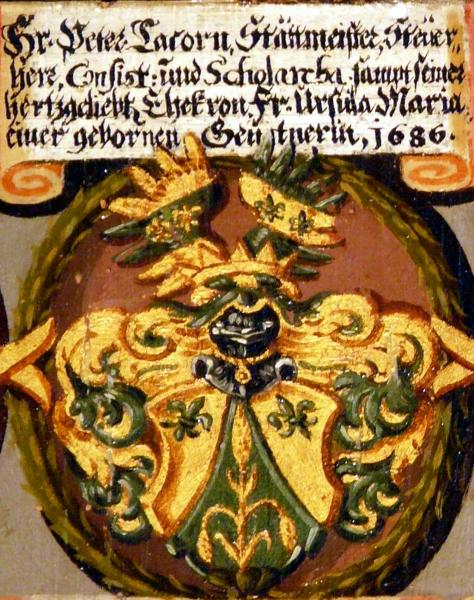 Hr. Peter Tacorn, Stättmeister, Steüer,
herr, Consist: und Scholarcha, sampt seiner
hertzgeliebt. Ehekron Fr. Ursula Maria,
einer gebornen 1686.